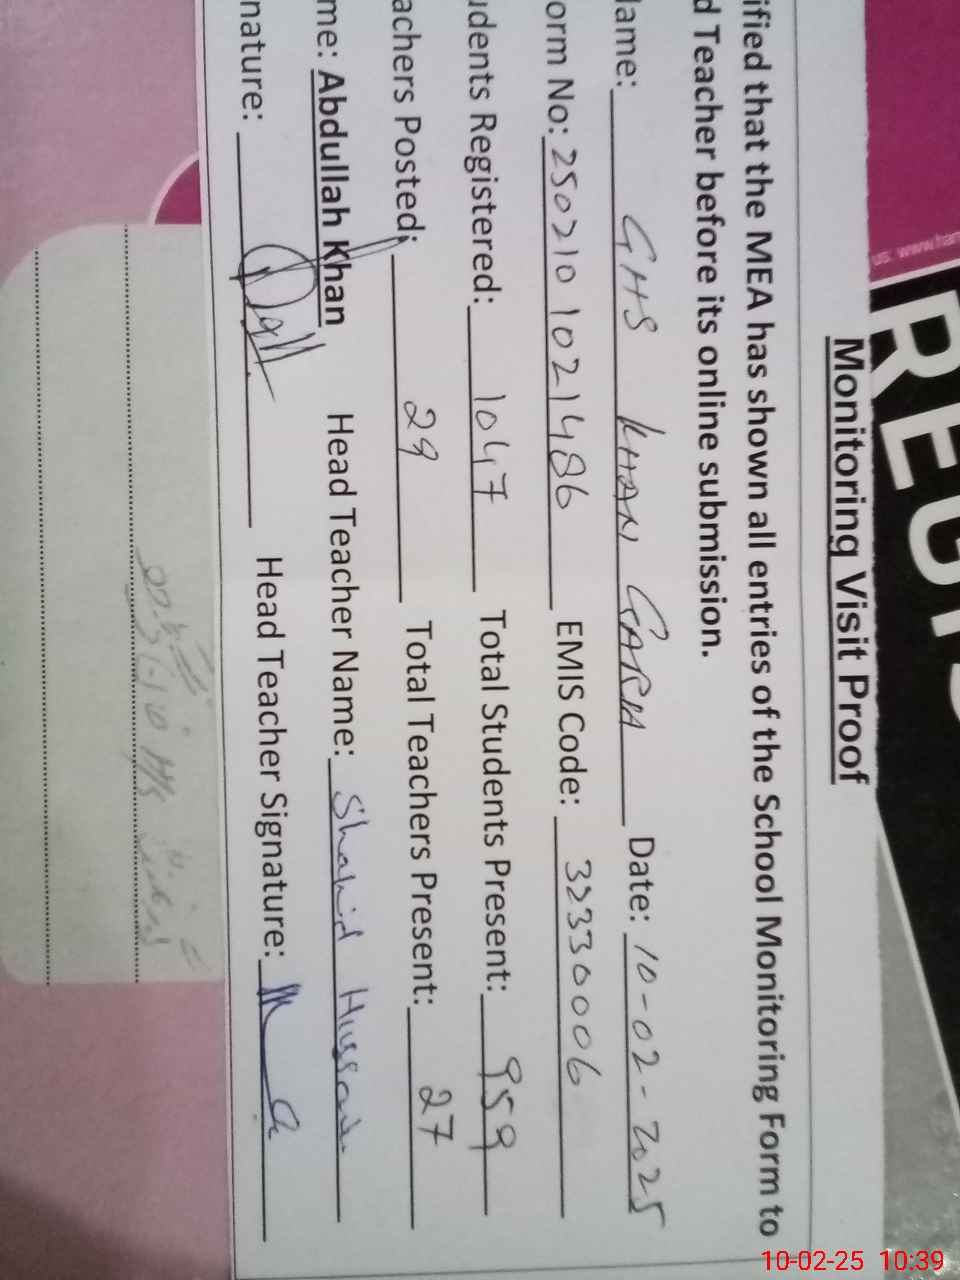 Monitoring Visit Proof
ified that the MEA has shown all entries of the School Monitoring Form to
d Teacher before its online submission.
lame: GHS KHAN GARH Date: 10-02-2025
orm No: 250210 1021486 EMIS Code: 32330006
udents Registered: 1047 Total Students Present: 959
achers Posted: 29 Total Teachers Present: 27
me: Abdullah Khan Head Teacher Name: Shahid Hussain
nature: Head Teacher Signature:
us: www.han
10-02-25 10:39